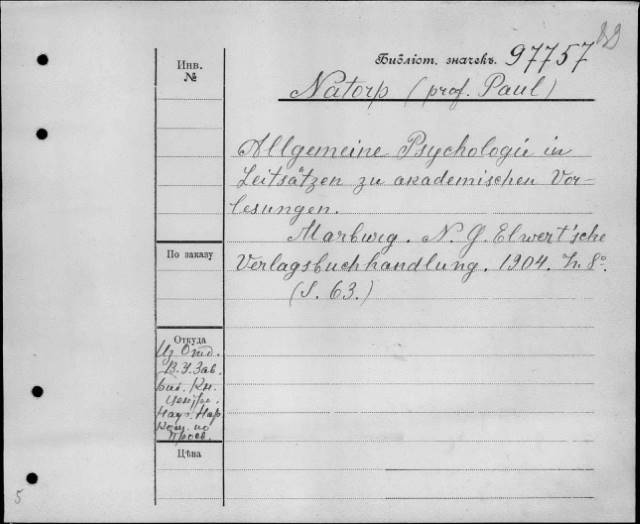 Инв.
№
Библіот. значекъ. 97757
Natorp (prof. Paul)
Allgemeine Psychologie in
Leitsätzen zu akademischen Vor-
lesungen.
Marburg. N. G. Elwert'sche
Verlagsbuchhandlung. 1904. in 8°.
(S. 63.)
По заказу
Откуда
Из Отд.
В.У.Зав.
Биб. Кн.
Центр.
Науч. Нар
Ком. по
Просв.
Цѣна
5